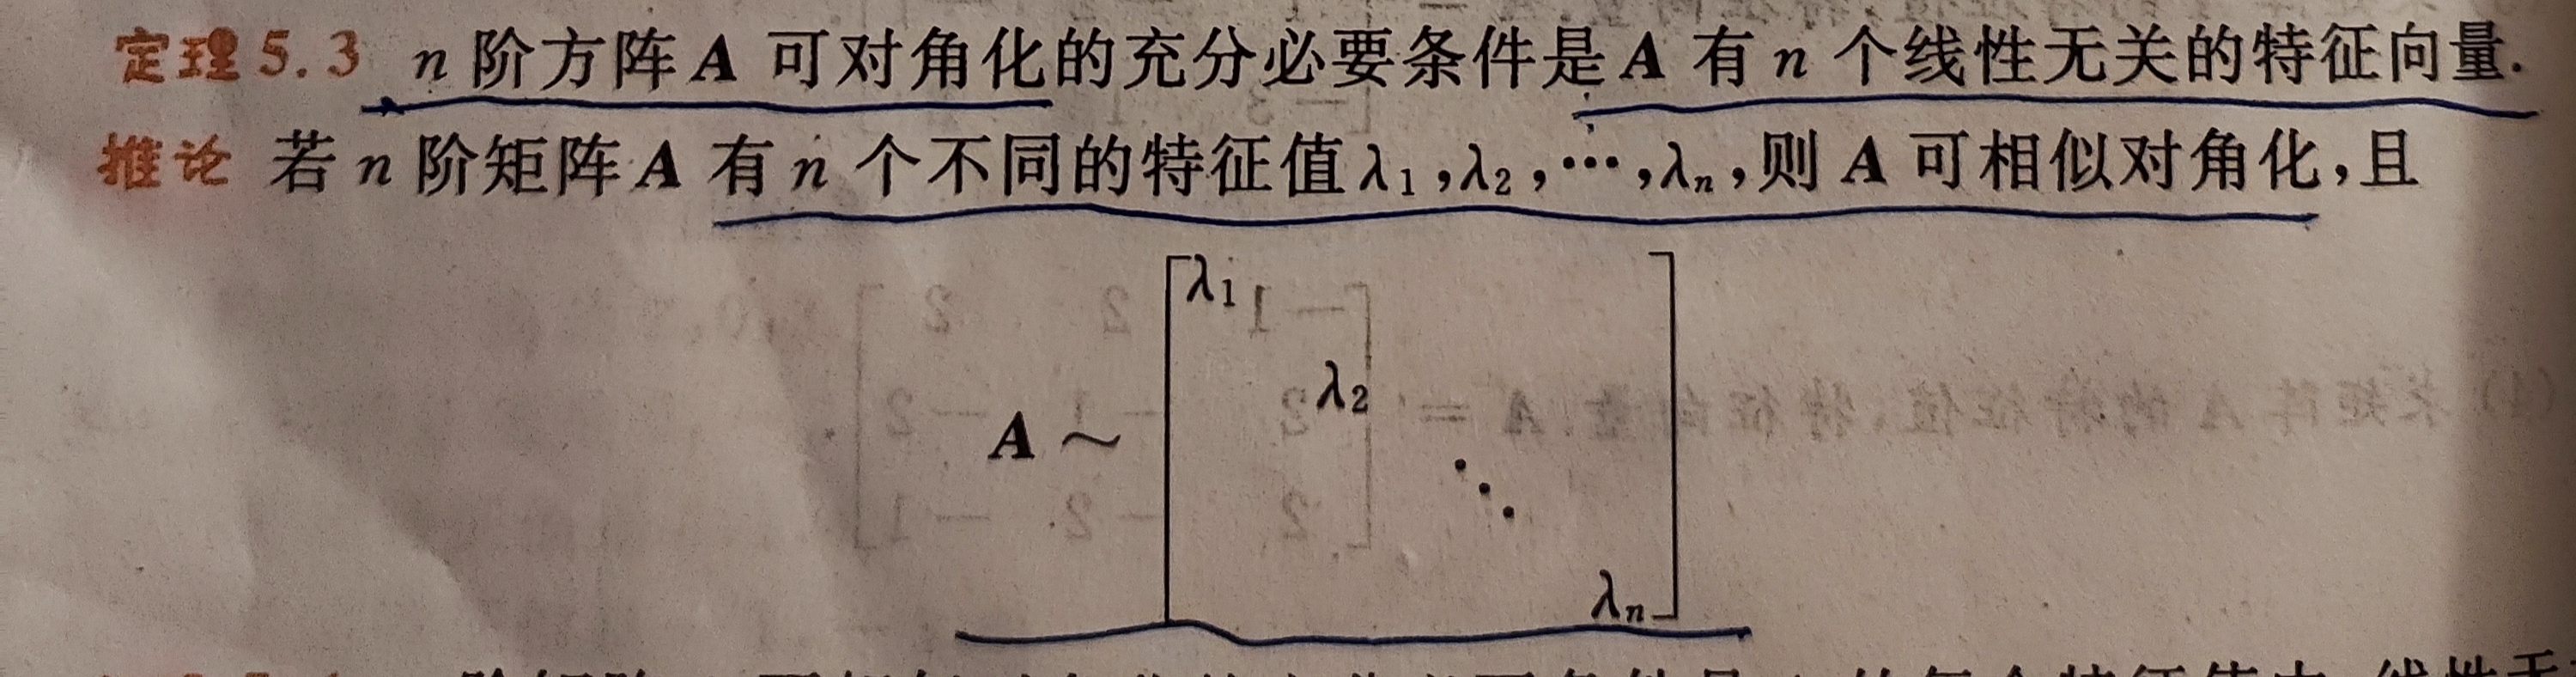 定理5.3 n 阶方阵 A 可对角化的充分必要条件是 A 有 n 个线性无关的特征向量.
推论 若 n 阶矩阵 A 有 n 个不同的特征值 λ₁,λ₂,…,λₙ,则 A 可相似对角化,且
A ~ [λ₁
λ₂
⋱
λₙ]